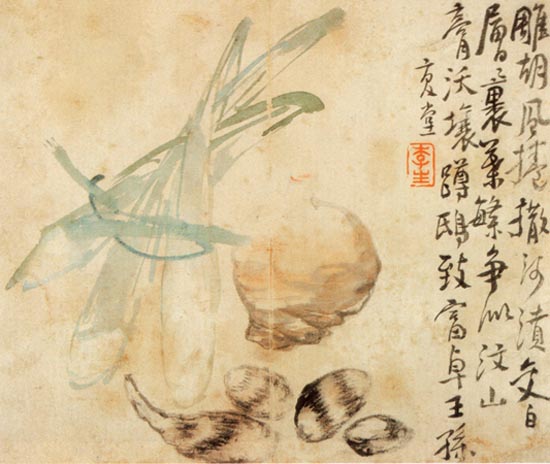 雕胡風捲撒河漬交白
層〻裹葉繁爭似汶山
膏沃壤蹲鴟致富卓王孫
复堂
李生